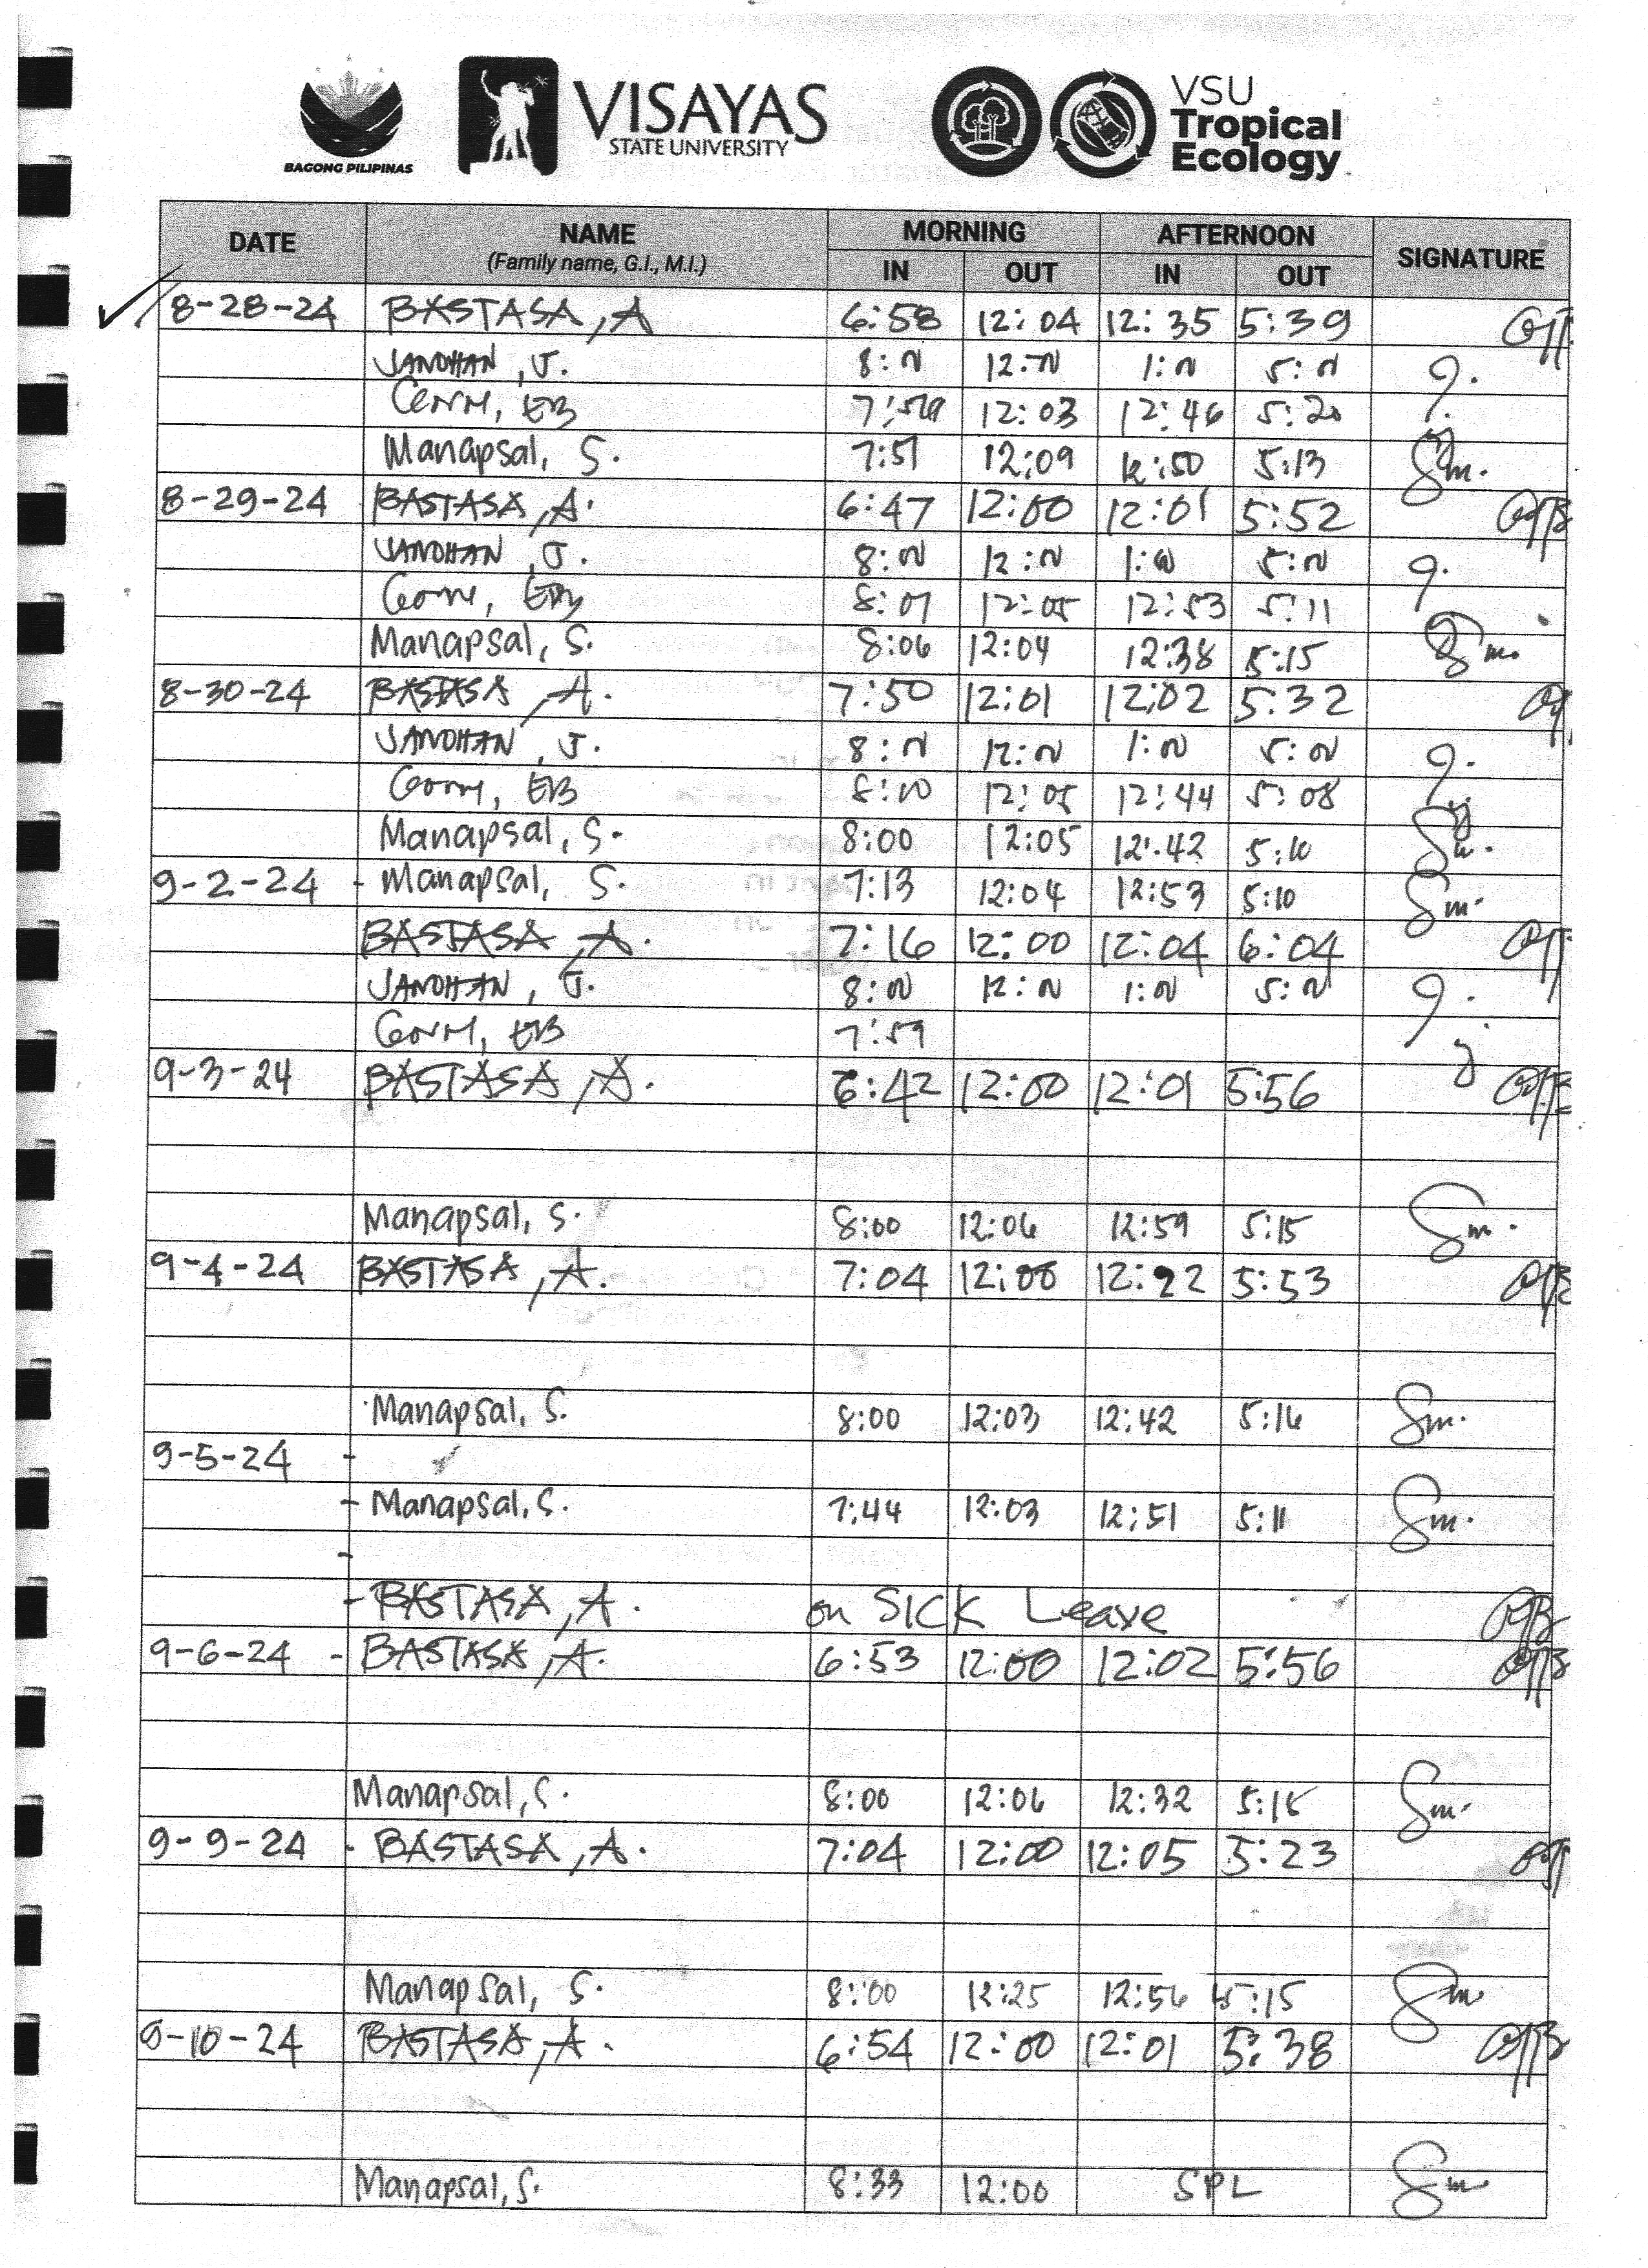 BAGONG PILIPINAS
VISAYAS
STATE UNIVERSITY
VSU
Tropical
Ecology
DATE NAME MORNING AFTERNOON SIGNATURE
(Family name, G.I., M.I.) IN OUT IN OUT
8-28-24 BASTASA, A 6:58 12:04 12:35 5:39
JANDHAN, J. 8:00 12:00 1:00 5:00
EB 7:59 12:03 12:46 5:20
Manapsal, S. 7:51 12:09 12:50 5:13 Sm.
8-29-24 BASTASA, A. 6:47 12:00 12:01 5:52
JANDHAN, J. 8:00 12:00 1:00 5:00
EB 8:07 12:05 12:53 5:11
Manapsal, S. 8:06 12:04 12:38 5:15 Sm.
8-30-24 BASTASA, A. 7:50 12:01 12:02 5:32
JANDHAN, J. 8:00 12:00 1:00 5:00
EB 8:00 12:05 12:44 5:08
Manapsal, S. 8:00 12:05 12:42 5:10
9-2-24 - Manapsal, S. 7:13 12:04 12:53 5:10 Sm.
BASTASA, A. 7:16 12:00 12:04 6:04
JANDHAN, J. 8:00 12:00 1:00 5:00
EB 7:59
9-3-24 BASTASA, A. 6:42 12:00 12:01 5:56
Manapsal, S. 8:00 12:06 12:59 5:15 Sm.
9-4-24 BASTASA, A. 7:04 12:00 12:22 5:53
Manapsal, S. 8:00 12:03 12:42 5:16 Sm.
9-5-24 -
- Manapsal, S. 7:44 12:03 12:51 5:11 Sm.
-
- BASTASA, A. on SICK Leave
9-6-24 - BASTASA, A. 6:53 12:00 12:02 5:56
Manapsal, S. 8:00 12:06 12:32 5:15 Sm.
9-9-24 - BASTASA, A. 7:04 12:00 12:05 5:23
Manapsal, S. 8:00 12:25 12:56 5:15 Sm
9-10-24 BASTASA, A. 6:54 12:00 12:01 5:38
Manapsal, S. 8:33 12:00 SPL Sm